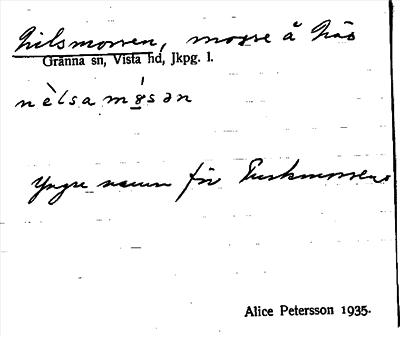 Nilsmossen, mosse å Näs
Gränna sn, Vista hd, Jkpg. l.
nèlsamósən
Yngre namn för Tuskmossen.
Alice Petersson 1935.